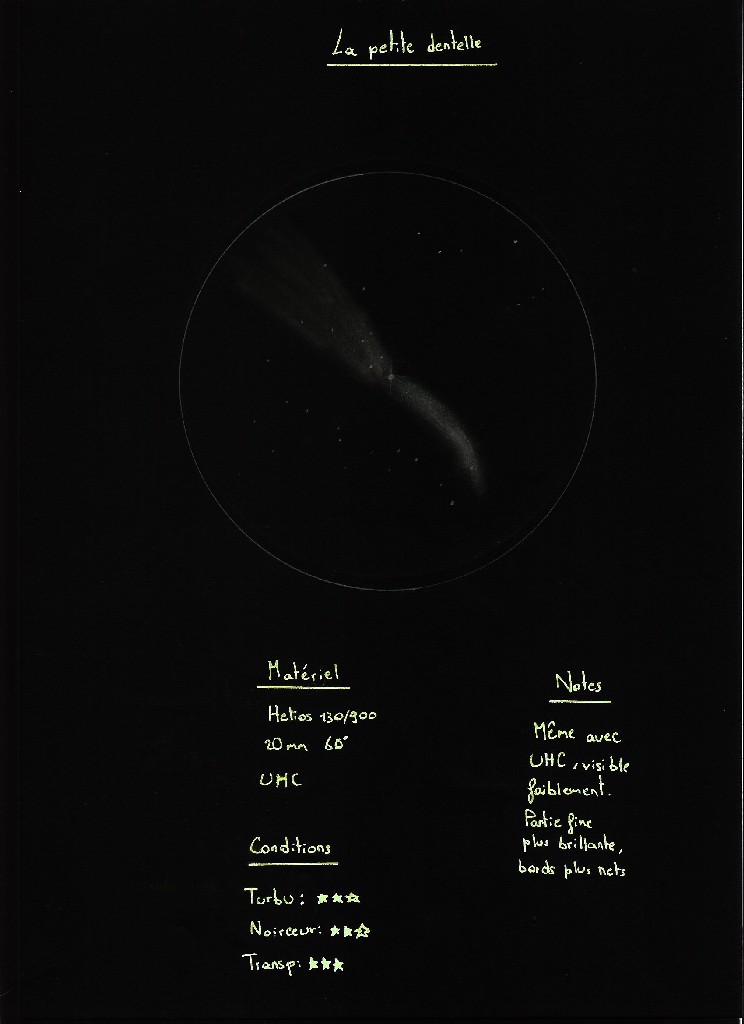 La petite dentelle
Matériel
Helios 130/900
20mm 60°
UHC
Conditions
Turbu: ★★☆
Noirceur: ★★☆
Transp: ★★★
Notes
Même avec
UHC, visible
faiblement.
Partie fine
plus brillante,
bords plus nets